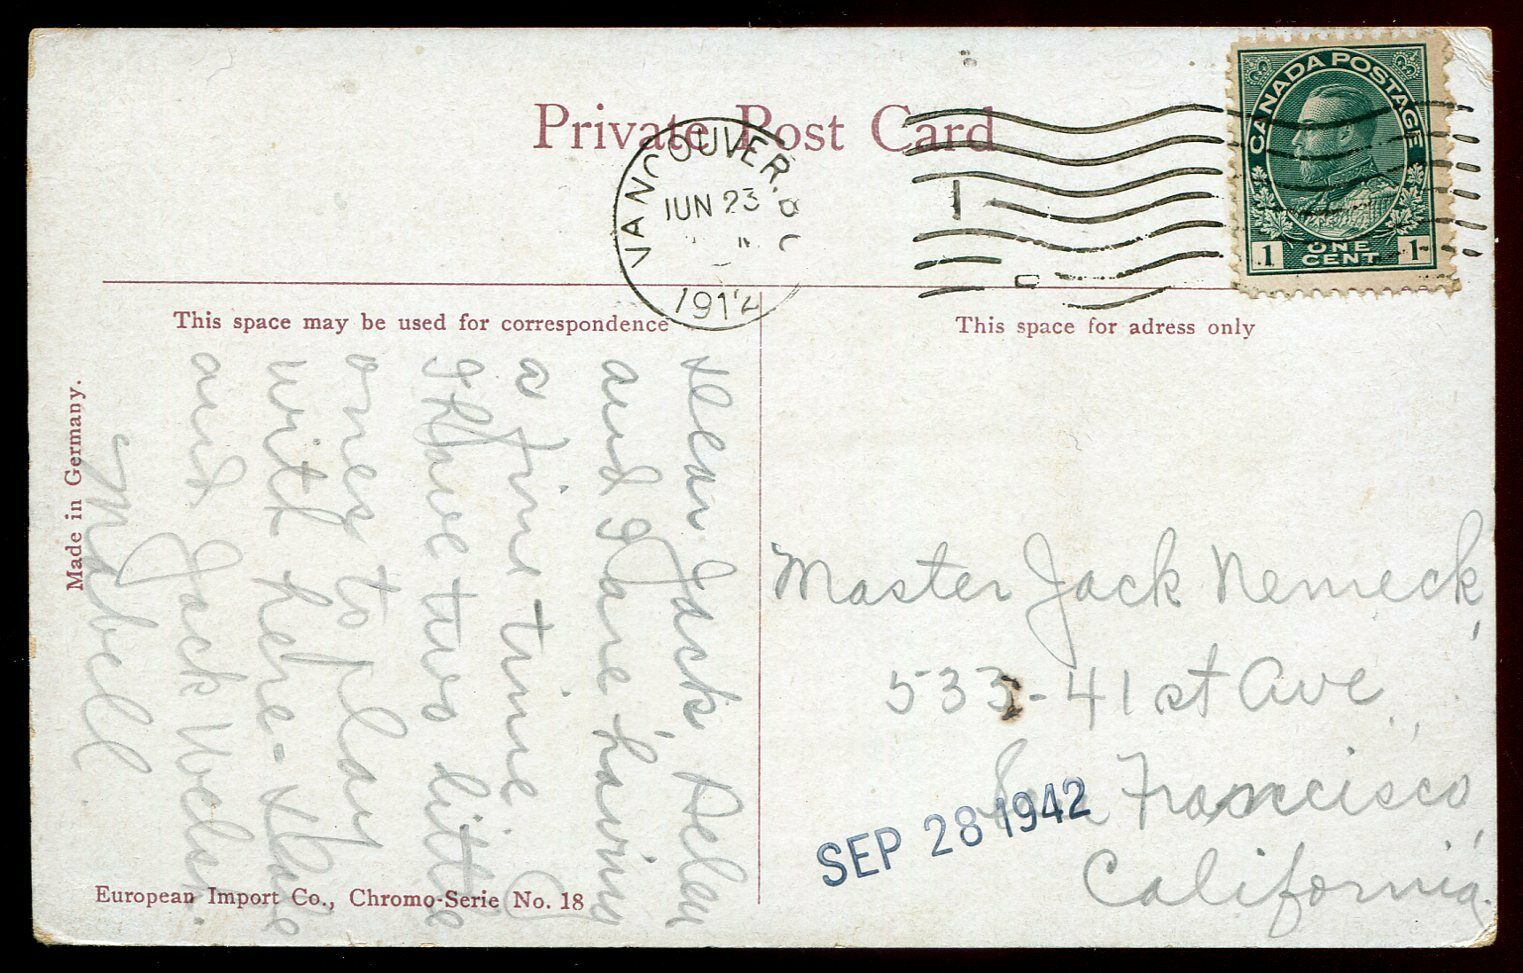 Private Post Card
VANCOUVER. B
JUN 23
1912
CANADA POSTAGE
1 ONE CENT 1
This space may be used for correspondence
This space for adress only
Made in Germany.
Dear Jack, Helen
and I are having
a fine time
I have two little
ones to play
with here-
and Jack Welsh.
Mabell
Master Jack Nemeck,
533-41st Ave.,
San Francisco,
California.
SEP 28 1942
European Import Co., Chromo-Serie No. 18